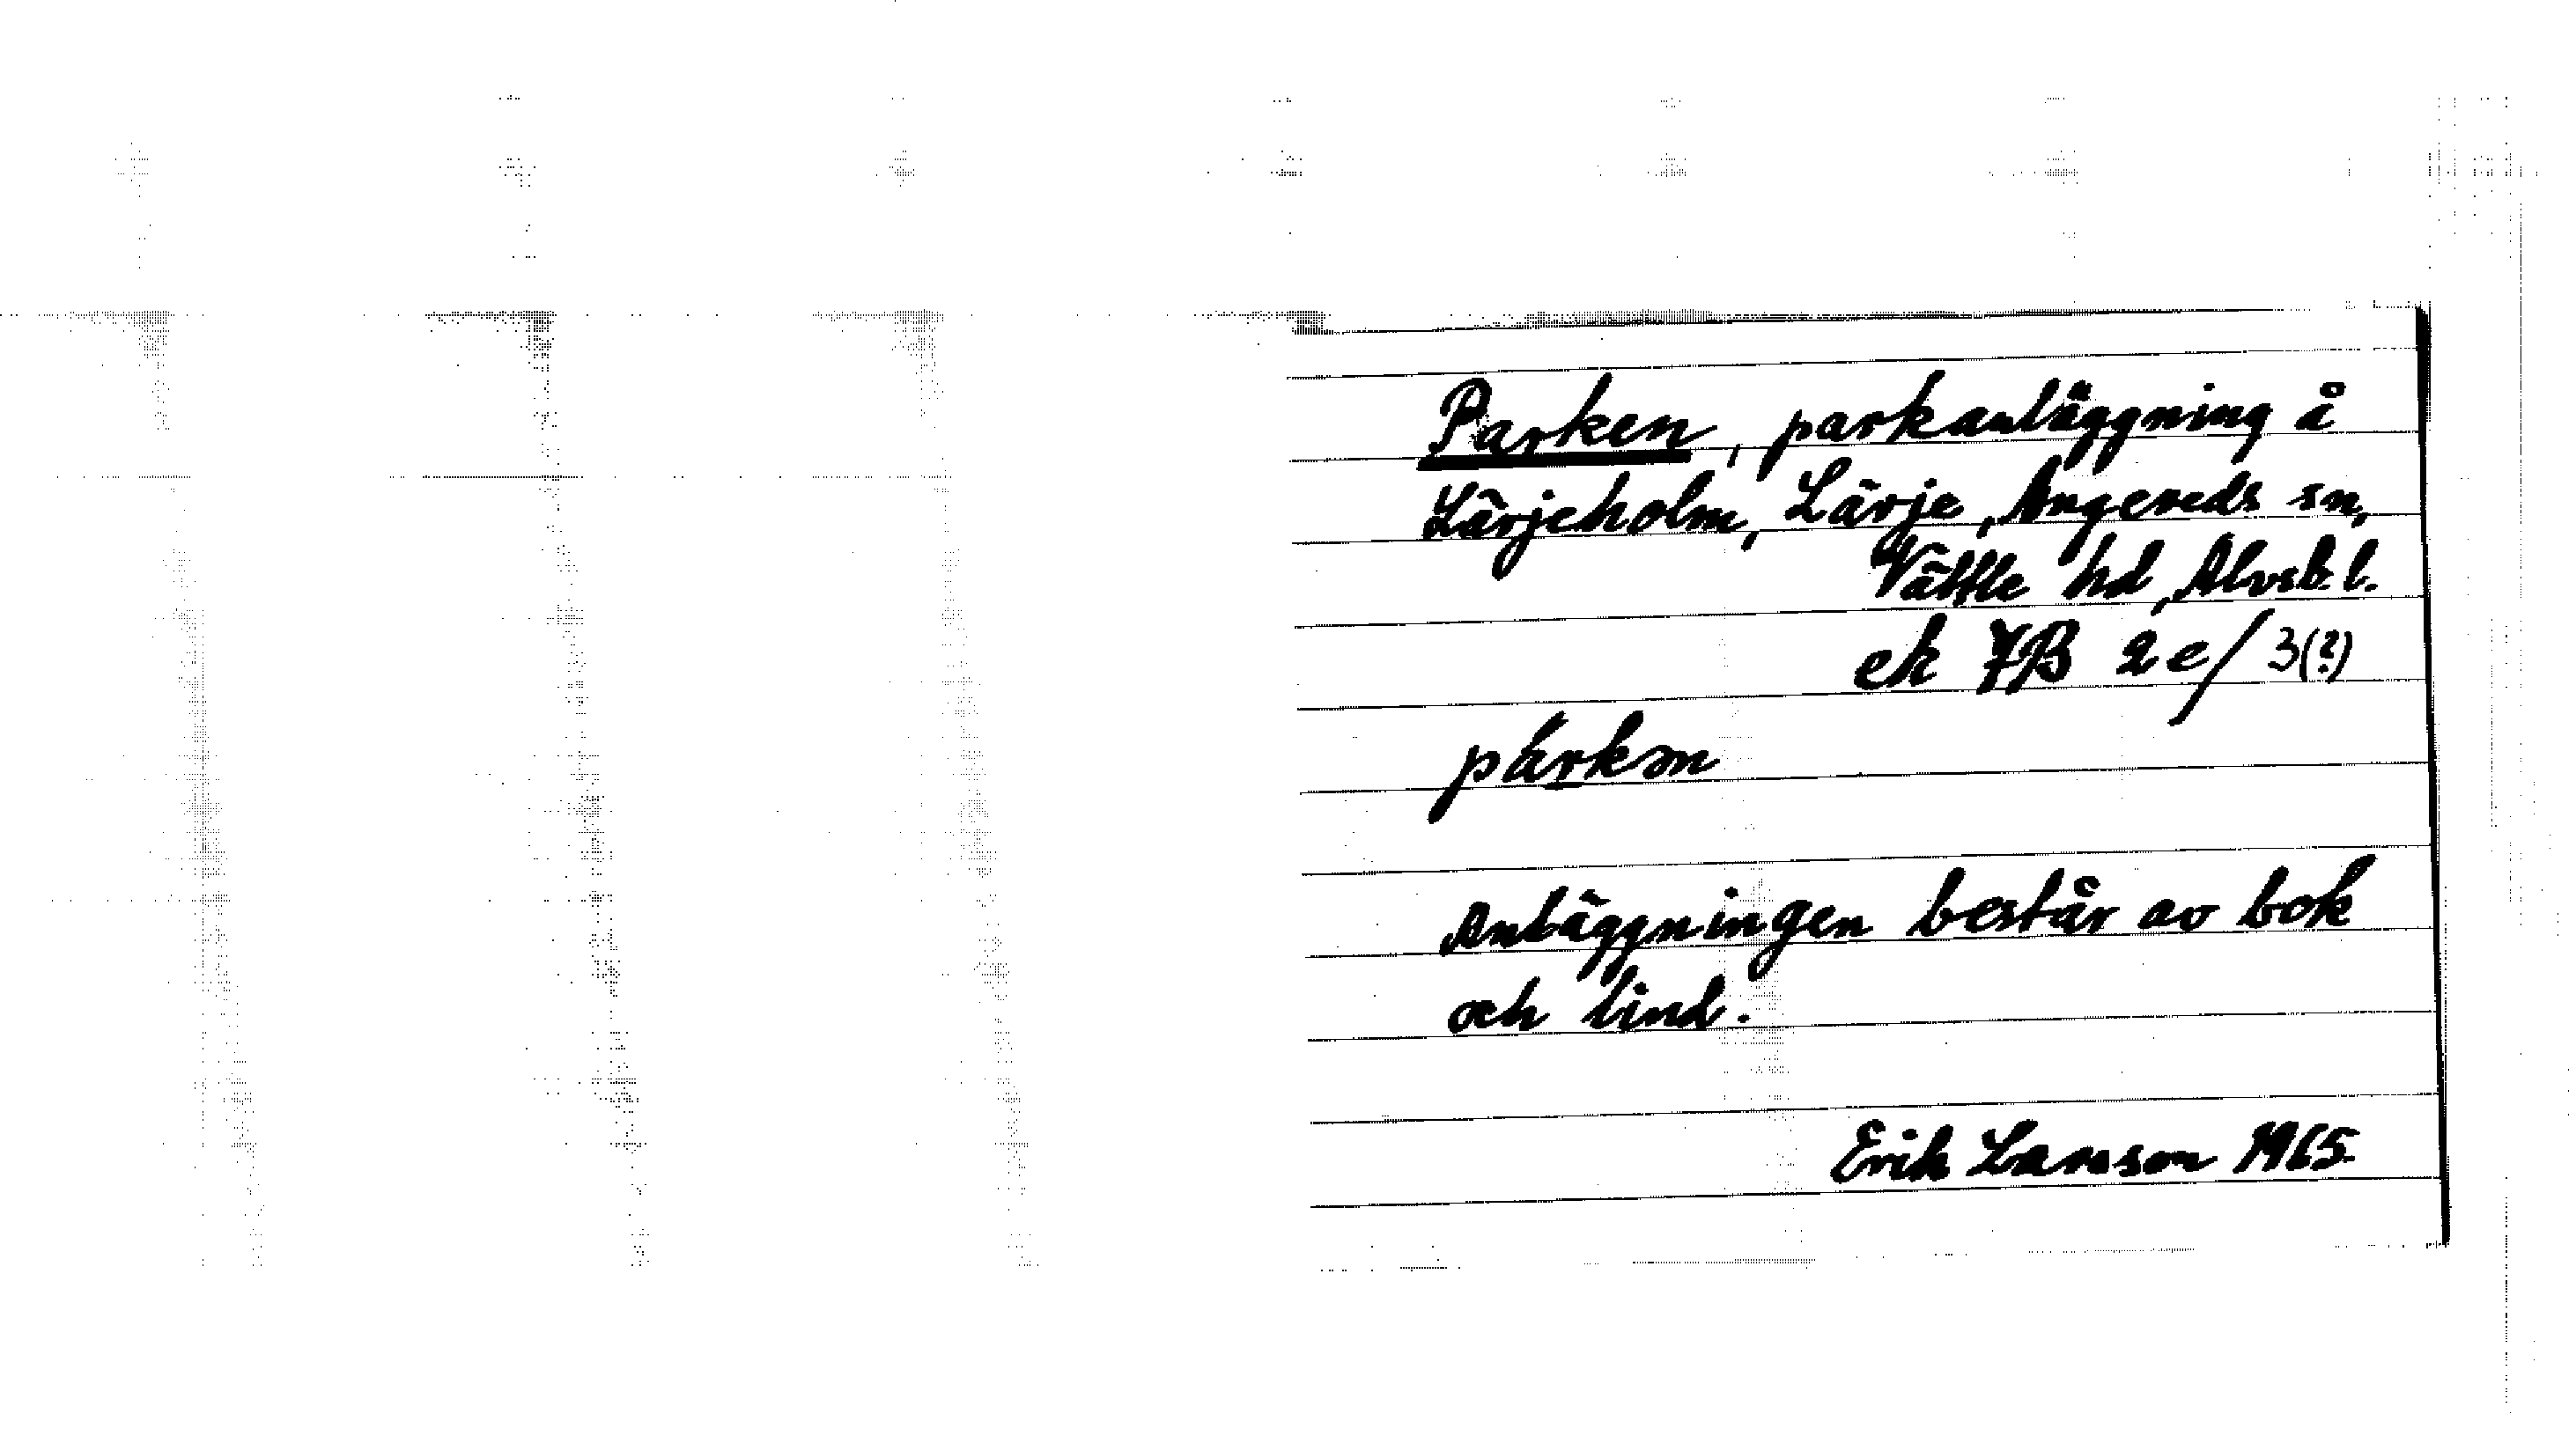 Parken, parkanläggning å
Lärjeholm, Lärje, Angereds sn,
Vättle hd, Älvsb. l.
ek 7B 2e/3(?)
párkən
Anläggningen består av bok
och lind.
Erik Larsson 1965.